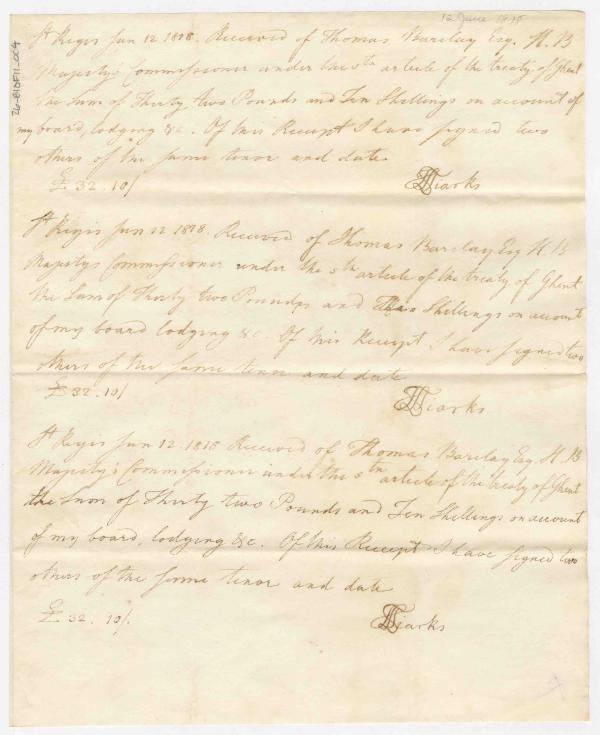 12 June 1818
26-B1DF11-004
St Regis Jun 12 1818. Received of Thomas Barclay Esq. H. B
Majesty's Commissioner under the 5th article of the treaty of Ghent
the sum of Thirty two Pounds and Ten Shillings on account of
my board, lodging &c. Of this Receipt I have signed two
others of the same tenor and date.
£ 32.10/
Tiarks
St Regis Jun 12 1818. Received of Thomas Barclay Esq H. B
Majestys Commissioner under the 5th article of the treaty of Ghent
the Sum of Thirty two Pounds and Shillings on account
of my board lodging &c. Of this Receipt I have signed two
others of the same tenor and date
£ 32.10/
Tiarks
St Regis Jun 12. 1818 Received of Thomas Barclay Esq. H. B
Majesty's Commissioner under the 5th article of the treaty of Ghent
the Sum of Thirty two Pounds and Ten Shillings on account
of my board, lodging &c. Of this Receipt I have signed two
others of the same tenor and date
£ 32. 10/.
Tiarks